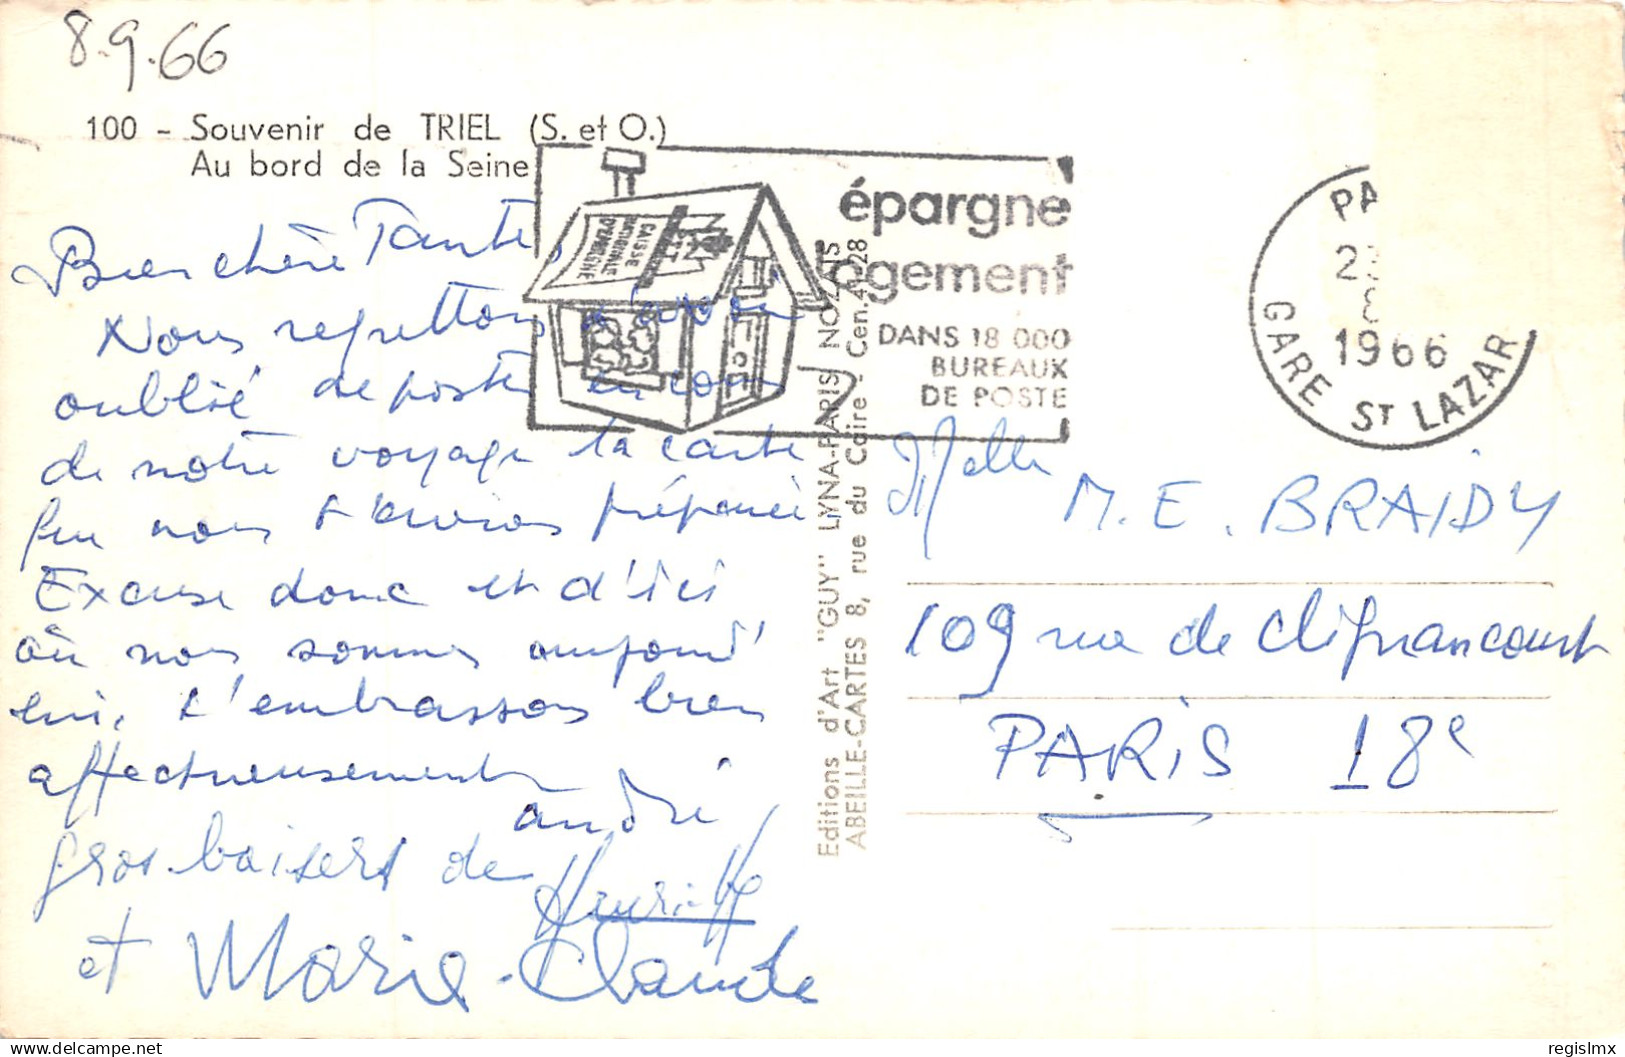 8.9.66
100 - Souvenir de TRIEL (S. et O.)
Au bord de la Seine
Bien chère Tante,
Nous regrettons d'avoir
oublié de poster en cours
de notre voyage la carte
que nous t'avions préparée
Excuse donc et d'ici
où nous sommes aujourd'
hui, t'embrassons bien
affectueusement
andré
gros baisers de Henriette
et Marie-Claude
CAISSE
NATIONALE
D'EPARGNE
épargne
logement
DANS 18 000
BUREAUX
DE POSTE
Editions d'Art "GUY" LYNA-PARIS NOZAIS
ABEILLE-CARTES 8, rue du Caire - Cen. 41-28
PA
23
8
1966
GARE ST LAZAR
Melle
M. E. BRAIDY
109 rue de Clignancourt
PARIS 18e
regislmx